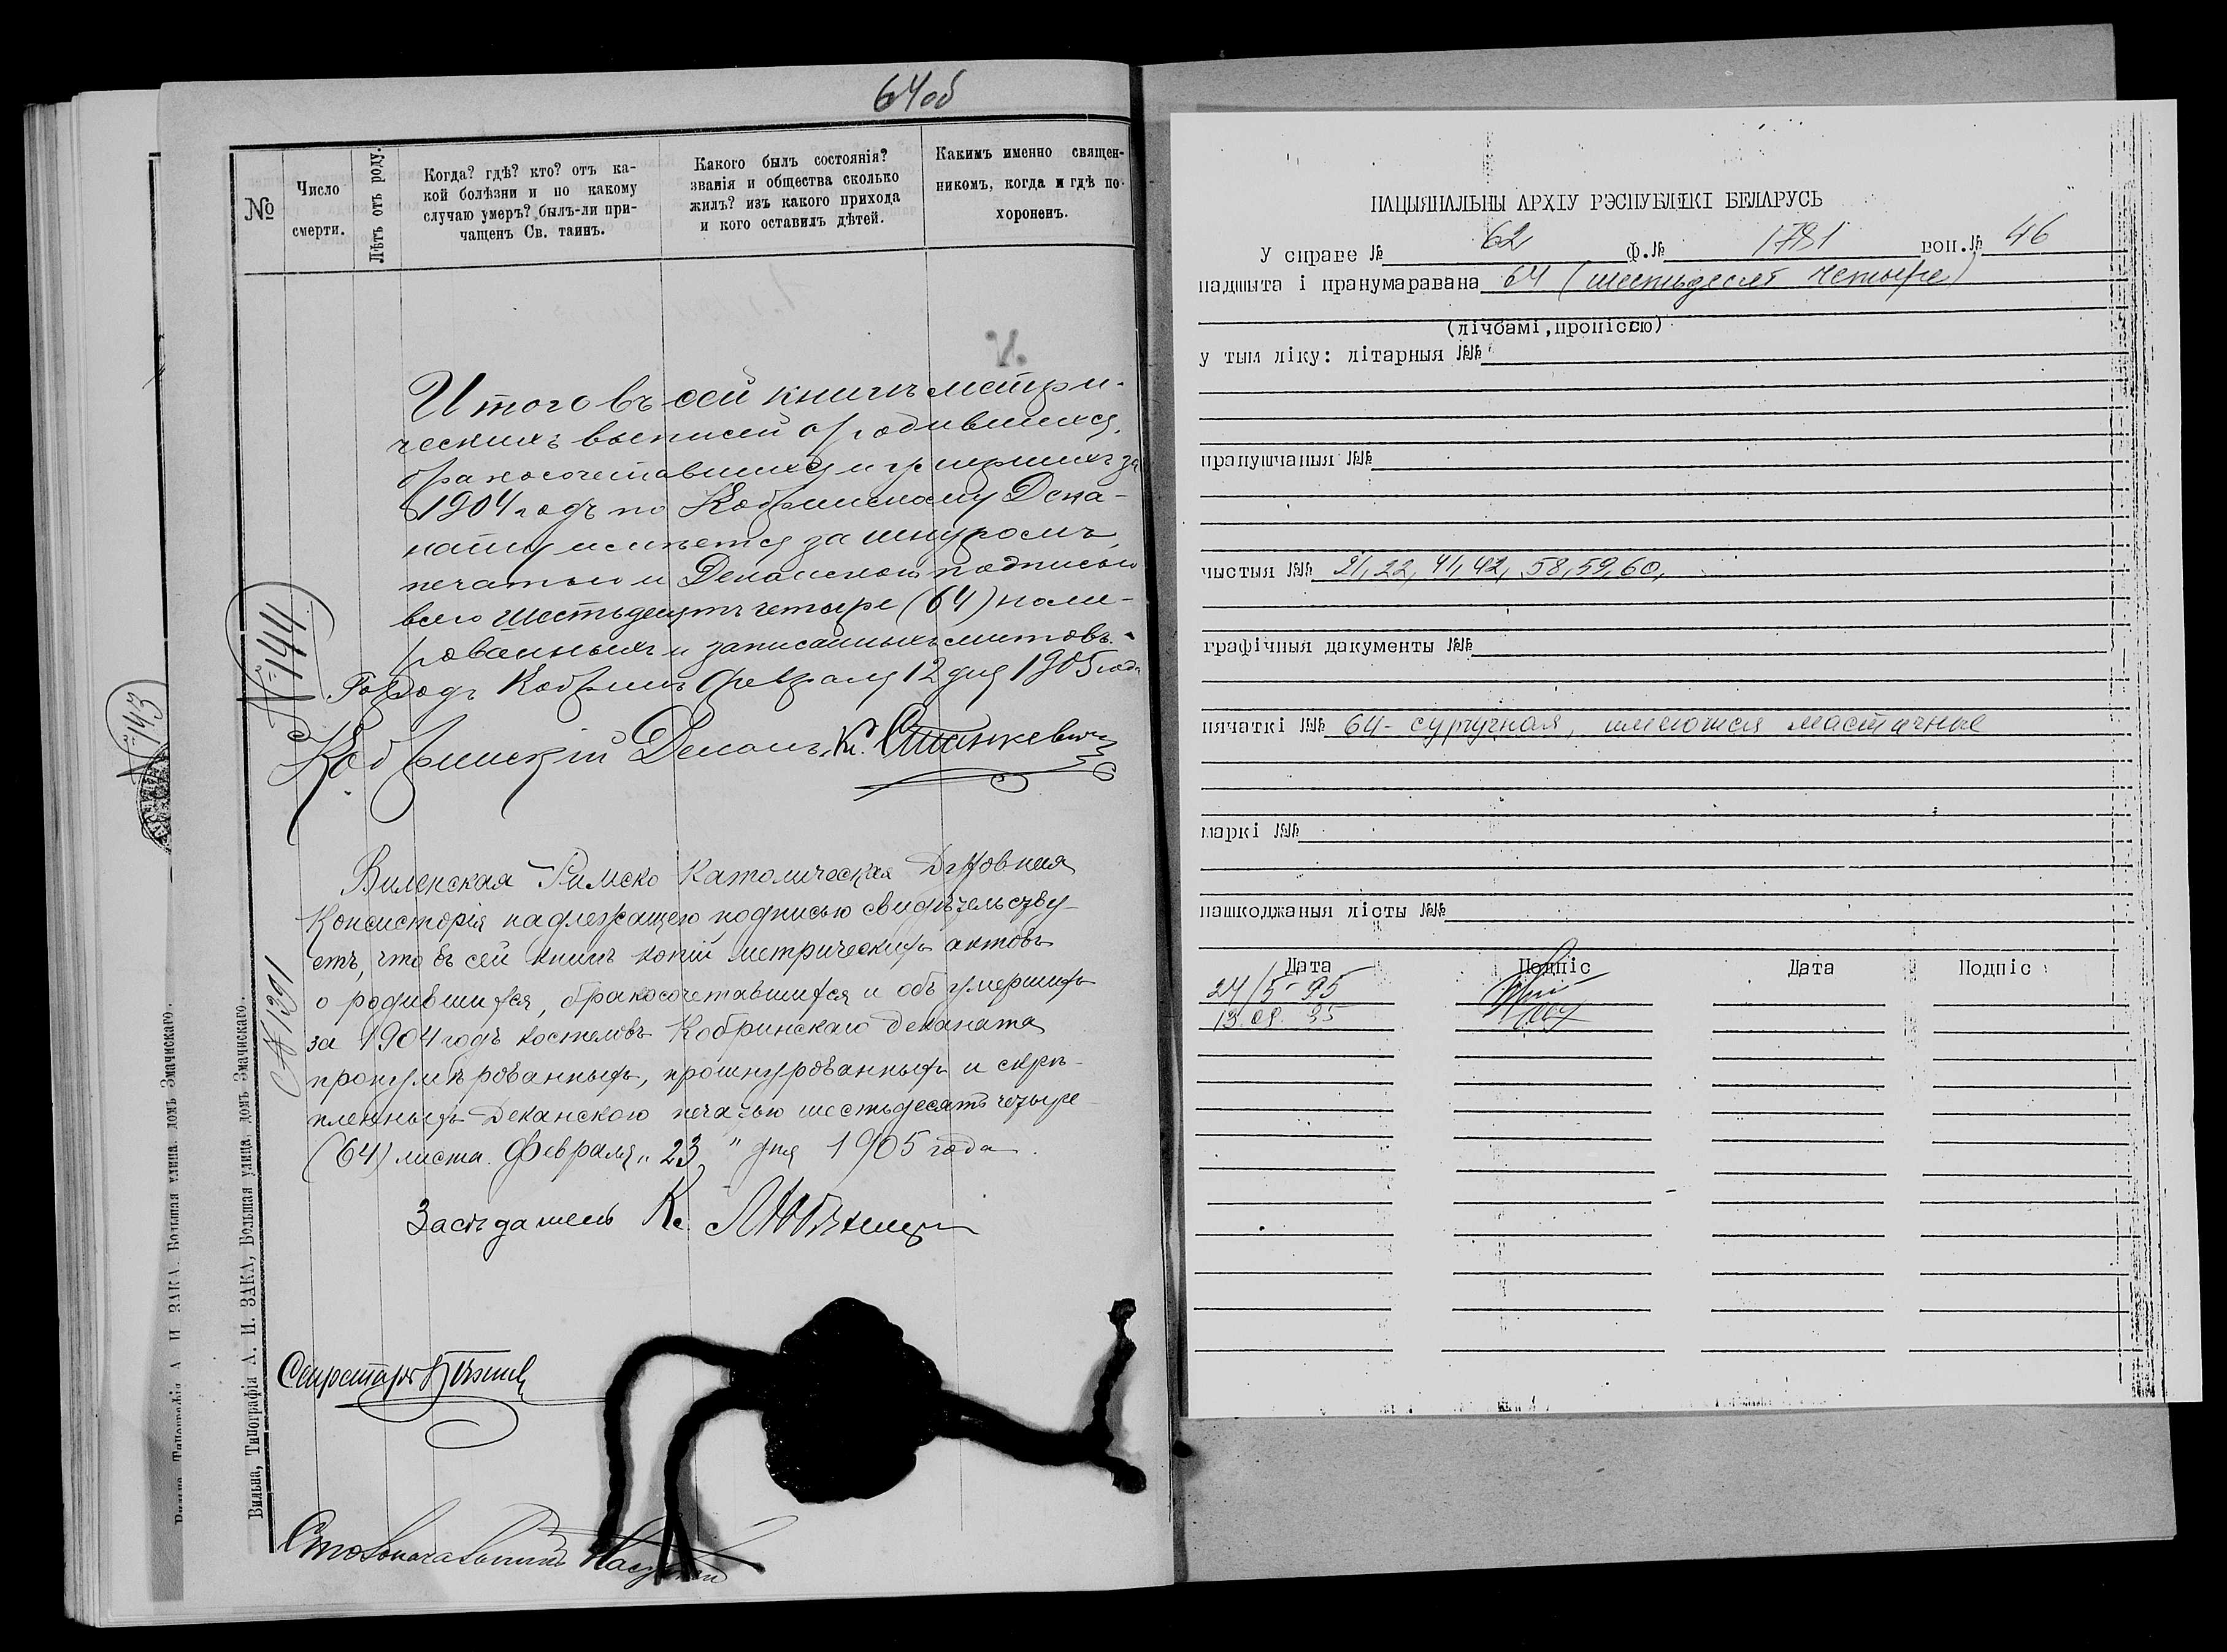 64об
№
Число
смерти.
Лѣтъ отъ роду.
Когда? гдѣ? кто? отъ ка-
кой болѣзни и по какому
случаю умеръ? былъ-ли при-
чащенъ Св. таинъ.
Какого былъ состоянія?
званія и общества сколько
жилъ? изъ какого прихода
и кого оставилъ дѣтей.
Какимъ именно священ-
никомъ, когда и гдѣ по-
хороненъ.
Итого въ сей книгѣ метри-
ческихъ выписей о родившихся,
бракосочетавшихся и умершихъ за
1904 годъ по Кобринскому Дека-
нату имѣется за шнуромъ,
печатью и Деканскою подписью
всего шестьдесятъ четыре (64) номе-
рованныхъ и записанныхъ листовъ.
Городъ Кобринъ Февраля 12 дня 1905 года
Кобринскій Деканъ, Кс.
№ 144
№ 143
Виленская Римско Католическая Духовная
Консисторія надлежащею подписью свидѣтельству-
етъ, что въ сей книгѣ копій метрическихъ актовъ
о родившихся, бракосочетавшихся и объ умершихъ
за 1904 годъ костеловъ Кобринскаго деканата
пронумѣрованныхъ, прошнурованныхъ и скрѣ-
пленныхъ Деканскою печатью шестьдесятъ четыре
(64) листа. Февраля „23" дня 1905 года.
№ 1391
Засѣдатель К.
Секретарь
Столоначальникъ
Вильна, Типографія А. И. ЗАКА, Большая улица, домъ Змачинскаго.
Вильна, Типографія А. И. ЗАКА, Большая улица, домъ Змачинскаго.
НАЦЫЯНАЛЬНЫ АРХІУ РЭСПУБЛІКІ БЕЛАРУСЬ
У справе № 62 ф.№ 1781 воп.№ 46
падшыта і пранумаравана 64 (шестьдесят четыре)
(лічбамі,пропіссю)
у тым ліку: літарныя №№
прапушчаныя №№
чыстыя №№ 21, 22, 41, 42, 58, 59, 60,
графічныя дакументы №№
пячаткі №№ 64 - сургучная, имеются мастичные
маркі №№
пашкоджаныя лісты №№
Дата Подпіс Дата Подпіс
24/5-95
13.09.95